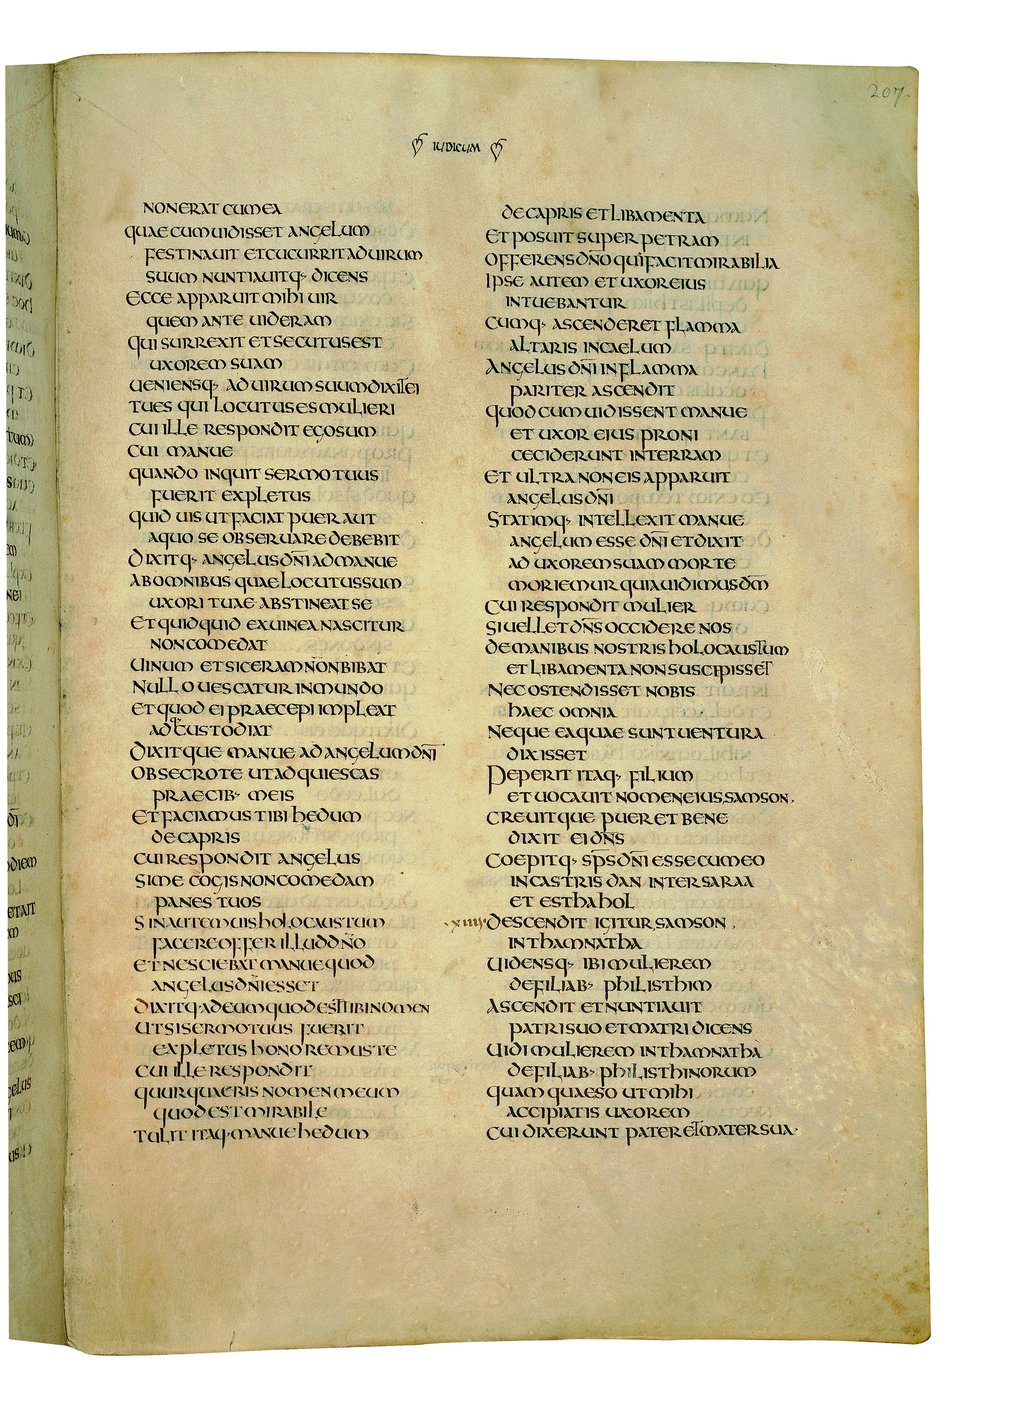 207.
IUDICUM
NON ERAT CUM EA
QUAE CUM UIDISSET ANGELUM
FESTINAUIT ET CUCURRIT AD UIRUM
SUUM NUNTIAUITQ· DICENS
ECCE APPARUIT MIHI UIR
QUEM ANTE UIDERAM
QUI SURREXIT ET SECUTUS EST
UXOREM SUAM
UENIENSQ· AD UIRUM SUUM DIXIT EI
TU ES QUI LOCUTUS ES MULIERI
CUI ILLE RESPONDIT EGO SUM
CUI MANUE
QUANDO INQUIT SERMO TUUS
FUERIT EXPLETUS
QUID UIS UT FACIAT PUER AUT
A QUO SE OBSERUARE DEBEBIT
DIXITQ· ANGELUS DN̄I AD MANUE
AB OMNIBUS QUAE LOCUTUS SUM
UXORI TUAE ABSTINEAT SE
ET QUIDQUID EX UINEA NASCITUR
NON COMEDAT
UINUM ET SICERAM NON BIBAT
NULLO UESCATUR INMUNDO
ET QUOD EI PRAECEPI IMPLEAT
ADQ· CUSTODIAT
DIXITQUE MANUE AD ANGELUM DN̄I
OBSECRO TE UT ADQUIESCAS
PRAECIB· MEIS
ET FACIAMUS TIBI HEDUM
DE CAPRIS
CUI RESPONDIT ANGELUS
SI ME COGIS NON COMEDAM
PANES TUOS
SIN AUTEM UIS HOLOCAUSTUM
FACERE OFFER ILLUD DN̄O
ET NESCIEBAT MANUE QUOD
ANGELUS DN̄I ESSET
DIXITQ· AD EUM QUOD EST TIBI NOMEN
UT SI SERMO TUUS FUERIT
EXPLETUS HONOREMUS TE
CUI ILLE RESPONDIT
QUUR QUAERIS NOMEN MEUM
QUOD EST MIRABILE
TULIT ITAQ· MANUE HEDUM
DE CAPRIS ET LIBAMENTA
ET POSUIT SUPER PETRAM
OFFERENS DN̄O QUI FACIT MIRABILIA
IPSE AUTEM ET UXOR EIUS
INTUEBANTUR
CUMQ· ASCENDERET FLAMMA
ALTARIS IN CAELUM
ANGELUS DN̄I IN FLAMMA
PARITER ASCENDIT
QUOD CUM UIDISSENT MANUE
ET UXOR EIUS PRONI
CECIDERUNT IN TERRAM
ET ULTRA NON EIS APPARUIT
ANGELUS DN̄I
STATIMQ· INTELLEXIT MANUE
ANGELUM ESSE DN̄I ET DIXIT
AD UXOREM SUAM MORTE
MORIEMUR QUIA UIDIMUS DM̄
CUI RESPONDIT MULIER
SI UELLET DN̄S OCCIDERE NOS
DE MANIBUS NOSTRIS HOLOCAUSTUM
ET LIBAMENTA NON SUSCIPISSET
NEC OSTENDISSET NOBIS
HAEC OMNIA
NEQUE EA QUAE SUNT UENTURA
DIXISSET
PEPERIT ITAQ· FILIUM
ET UOCAUIT NOMEN EIUS SAMSON.
CREUITQUE PUER ET BENE
DIXIT EI DN̄S
COEPITQ· SP̄S DN̄I ESSE CUM EO
IN CASTRIS DAN INTER SARAA
ET ESTHAHOL
·XIIII· DESCENDIT IGITUR SAMSON.
IN THAMNATHA
UIDENSQ· IBI MULIEREM
DE FILIAB· PHILISTHIM
ASCENDIT ET NUNTIAUIT
PATRI SUO ET MATRI DICENS
UIDI MULIEREM IN THAMNATHA
DE FILIAB· PHILISTHINORUM
QUAM QUAESO UT MIHI
ACCIPIATIS UXOREM
CUI DIXERUNT PATER ET MATER SUA·